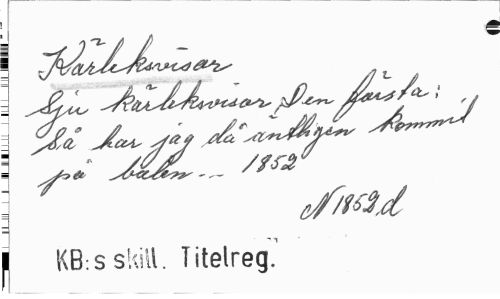 Kärleksvisor
Sju kärleksvisor, Den första:
Så har jag då äntligen kommit
på balen --- 1852
N 1852.d
KB:s skill. Titelreg.